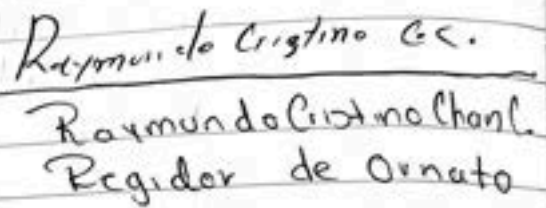 Raymundo Cristino C.C.
Raymundo Cristino Chan C.
Regidor de Ornato